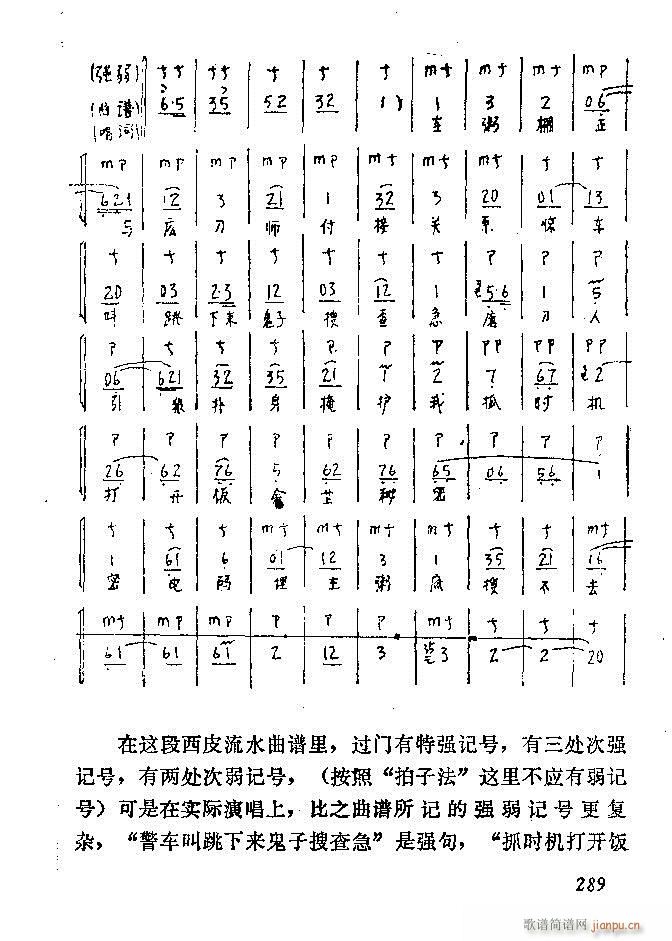 (强弱) f f f f f f f mf mf mf mp
(曲谱) 6·5 35 52 32 1) 1 3 2 06
(唱词) 在 粥 棚 正
mp mp mp mp mp mf mf f f
621 12 3 21 1 32 3 20 01 13
与 磨 刀 师 付 接 关 系 惊 车
f f f f f f f P P P
20 03 2·3 12 03 12 1 5·6 1 5
叫 跳 下来 鬼子 搜 查 急 磨 刀 人
P f f f P P P PP PP PP
06 621 32 35 21 7 2 7 67 2
引 狼 扑 身 掩 护 我 抓 时 机
P P P P P P P P P P
26 62 76 5 62 76 65 06 56 1
打 开 饭 盒 芷 种 密
f f f mf mf f f mf f mf
1 61 6 01 12 3 1 35 21 16
密 电 码 埋 在 粥 底 搜 不 去
mf mp mp P P P mf f f f
61 61 61 2 12 3 3 2 2 20
在这段西皮流水曲谱里，过门有特强记号，有三处次强
记号，有两处次弱记号，（按照“拍子法”这里不应有弱记
号）可是在实际演唱上，比之曲谱所记的强弱记号更复
杂，“警车叫跳下来鬼子搜查急”是强句，“抓时机打开饭
289
歌谱简谱网 jianpu.cn